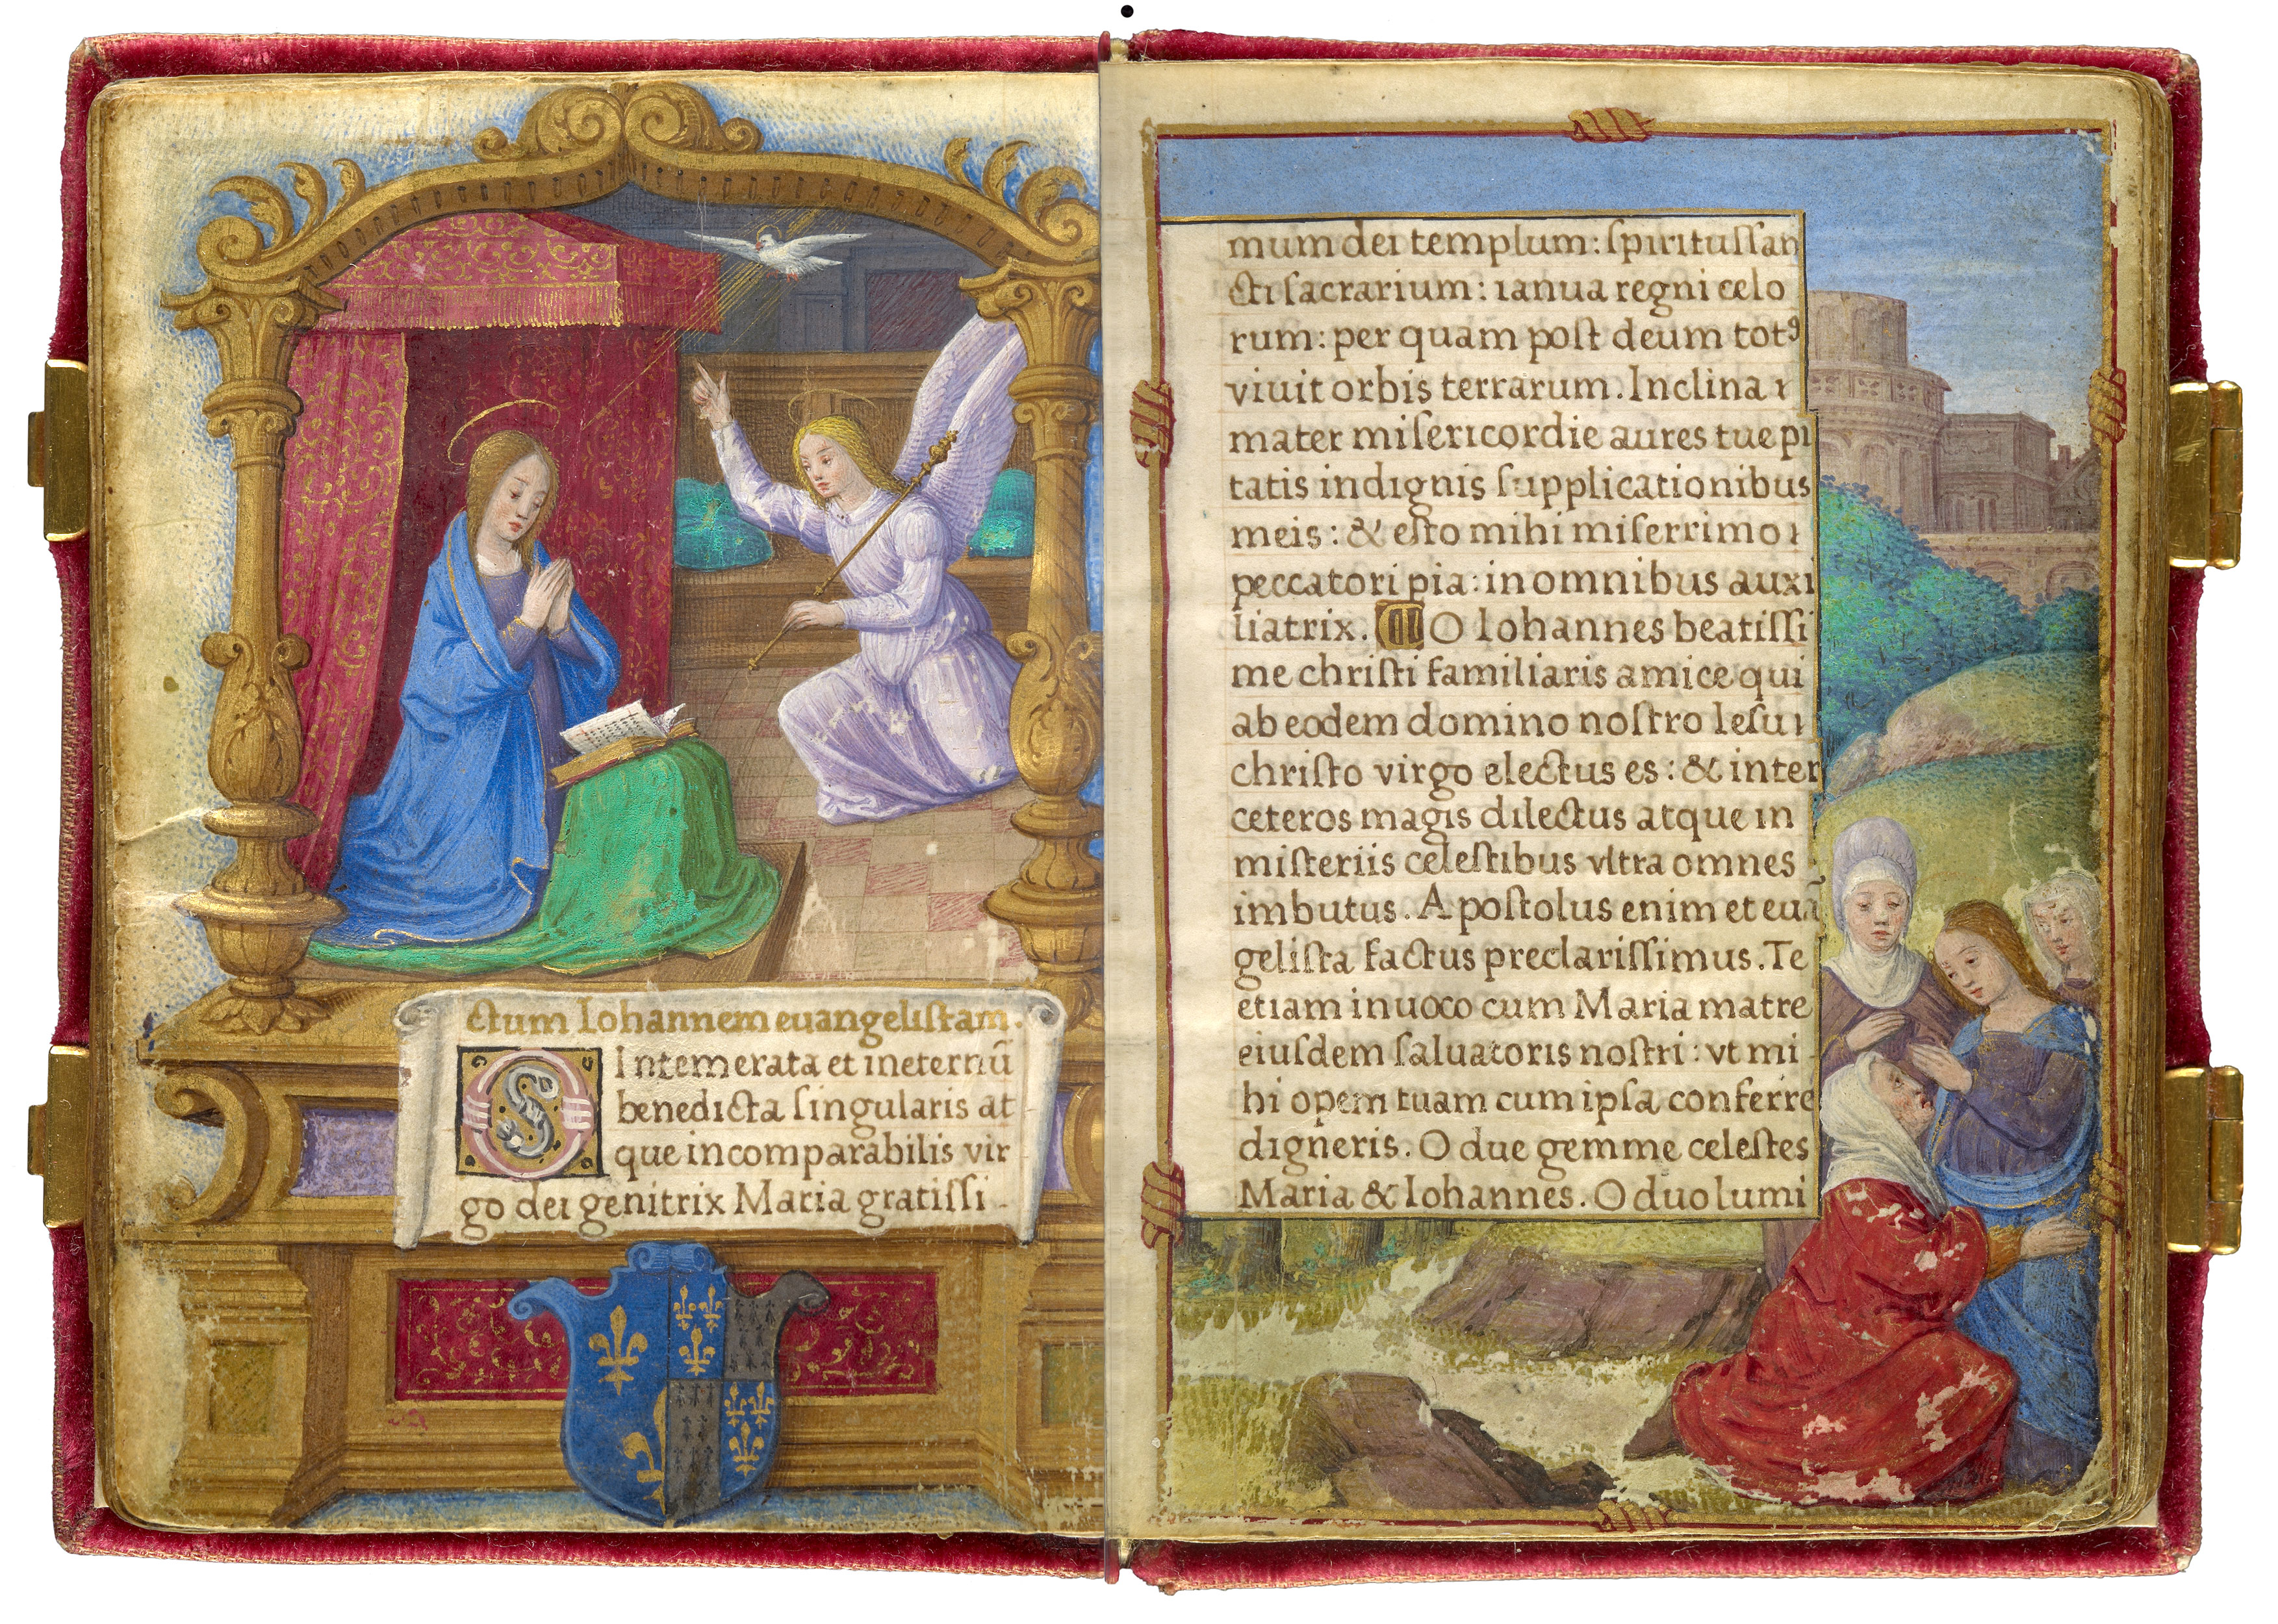 ctum Iohannem euangelistam.
O Intemerata et in eternū
benedicta singularis at
que incomparabilis vir
go dei genitrix Maria gratissi
mum dei templum: spiritussan
cti sacrarium: ianua regni celo
rum: per quam post deum totꝰ
viuit orbis terrarum. Inclina
mater misericordie aures tue pi
tatis indignis supplicationibus
meis: & esto mihi miserrimo
peccatori pia: in omnibus auxi
liatrix. O Iohannes beatissi
me christi familiaris amice qui
ab eodem domino nostro Iesu
christo virgo electus es: & inter
ceteros magis dilectus atque in
misteriis celestibus vltra omnes
imbutus. Apostolus enim et euā
gelista factus preclarissimus. Te
etiam inuoco cum Maria matre
eiusdem saluatoris nostri: vt mi
hi opem tuam cum ipsa conferre
digneris. O due gemme celestes
Maria & Iohannes. O duo lumi